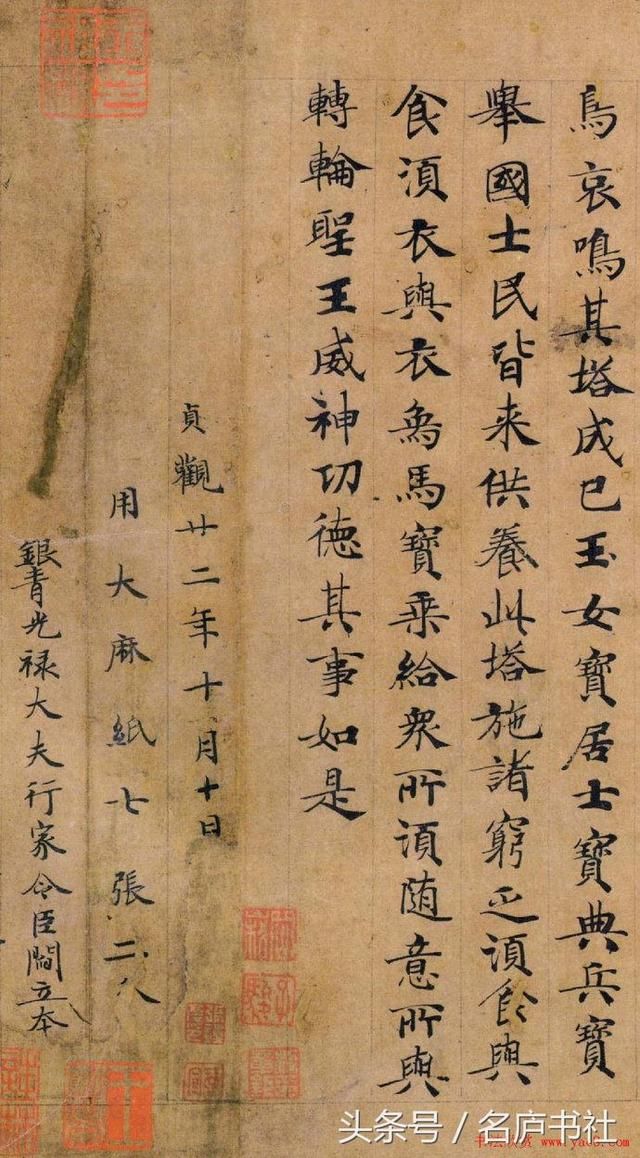 鳥哀鳴其塔成已玉女寶居士寶典兵寶
舉國士民皆来供養此塔施諸窮乏須食與
食須衣與衣象馬寶乘給眾所須随意所與
轉輪聖王威神功德其事如是
貞觀廿二年十二月十日
用大麻紙七張二分
銀青光禄大夫行家令臣閻立本
头条号／名庐书社